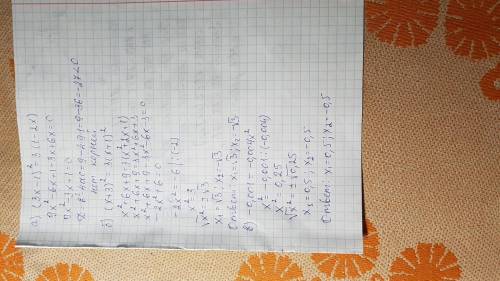 а) (3x-1)² = 3(1-2x)
9x²-6x+1=3-6x=0
нет корней
б) (x+3)² = 3(x+1)²
x²+6x+9=3(x²+2x+1)
x²+6x+9=3x²+6x+3
x²+6x+9-3x²-6x-3=0
-2x²+6=0
-2x²=-6 |:(-2)
x²=3
√x²=±√3
x₁=√3; x₂=-√3
Ответ: x₁=√3; x₂=-√3
в) -0,001=-0,004x²
x²=-0,001:(-0,004)
x²=0,25
√x²=±√0,25
x₁=0,5; x₂=-0,5
Ответ: x₁=0,5; x₂=-0,5